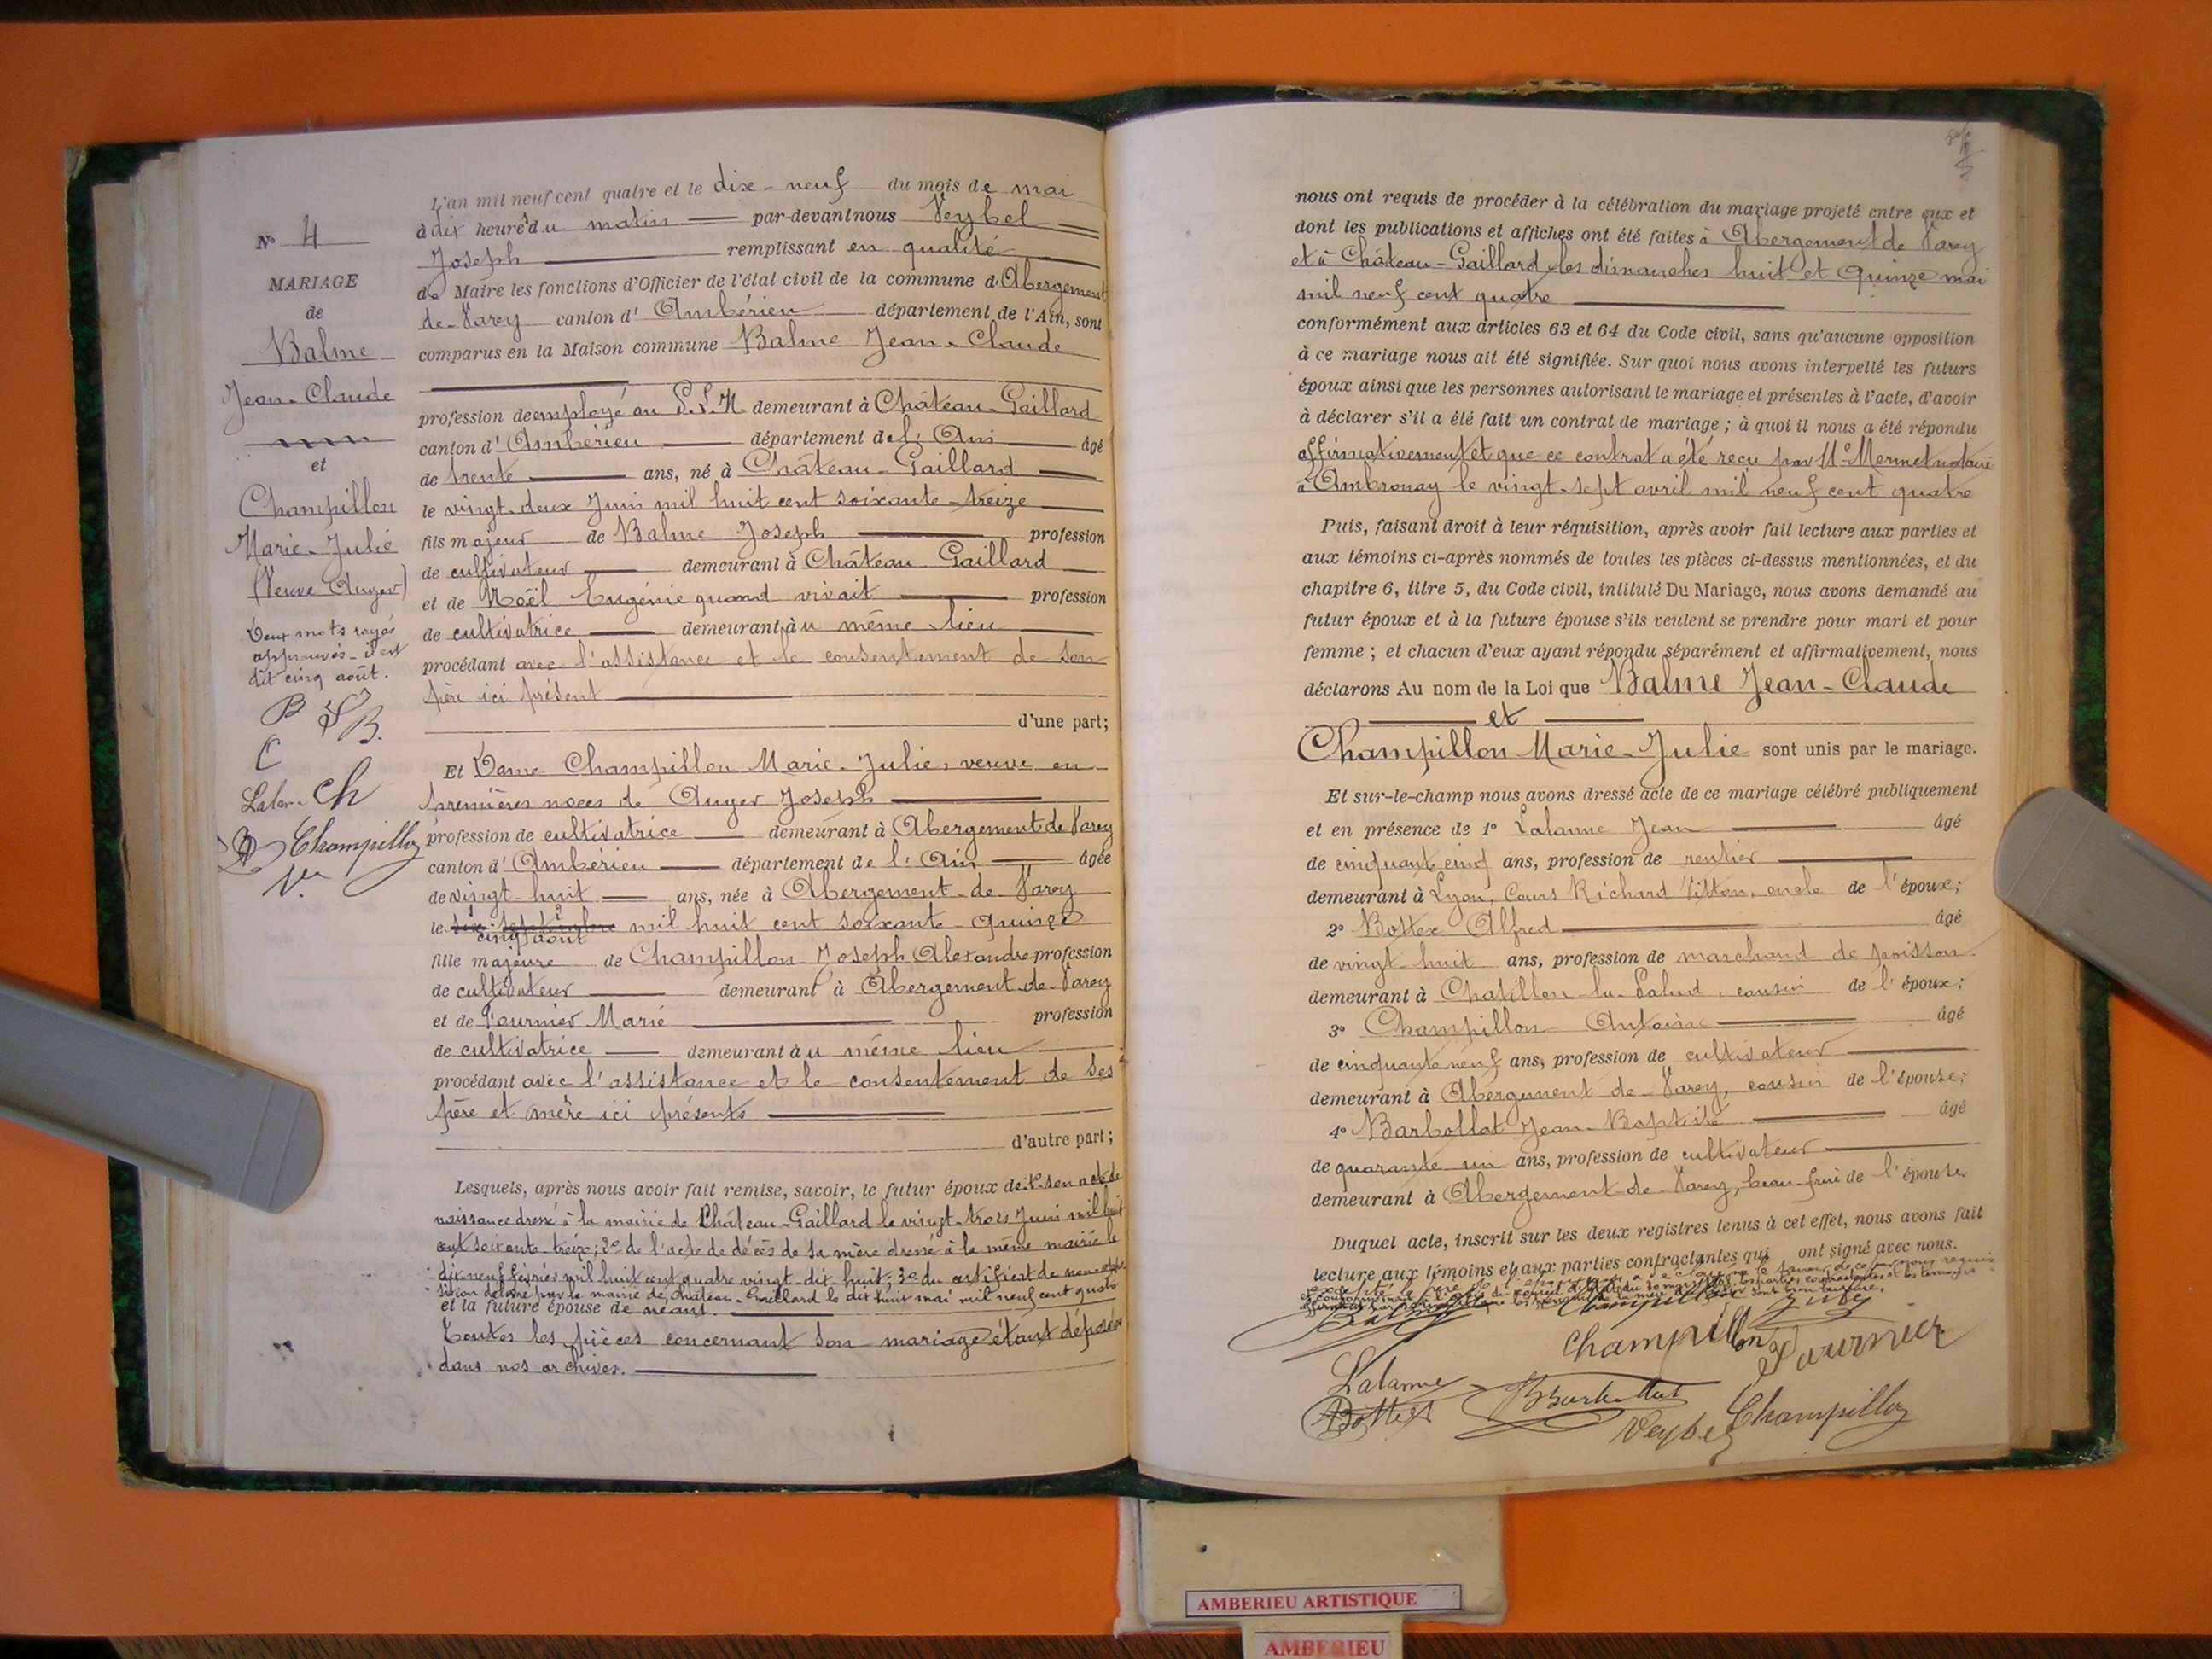 N° 4
MARIAGE
de
Balme
Jean-Claude
et
Champillon
Marie-Julie
(Veuve Auger)
Deux mots rayés
approuvés - il est
dit cinq août.
B
C
Lalan. Ch
Champillon
L'an mil neuf cent quatre et le dix-neuf du mois de mai
à dix heures du matin par-devant nous Veybel
Joseph remplissant en qualité
de Maire les fonctions d'Officier de l'état civil de la commune d'Abergement
de-Varey canton d'Ambérieu département de l'Ain, sont
comparus en la Maison commune Balme Jean-Claude
profession de employé au P.L.M. demeurant à Château-Gaillard
canton d'Ambérieu département de l'Ain âgé
de trente ans, né à Château-Gaillard
le vingt-deux Juin mil huit cent soixante-treize
fils majeur de Balme Joseph profession
de cultivateur demeurant à Château Gaillard
et de Noël Eugénie quand vivait profession
de cultivatrice demeurant au même lieu
procédant avec l'assistance et le consentement de son
père ici présent
d'une part;
Et Dame Champillon Marie-Julie, veuve en
premières noces de Auger Joseph
profession de cultivatrice demeurant à Abergement de Varey
canton d'Ambérieu département de l'Ain âgée
de vingt-huit ans, née à Abergement-de-Varey
le cinq août mil huit cent soixante-quinze
fille majeure de Champillon Joseph Alexandre profession
de cultivateur demeurant à Abergement-de-Varey
et de Fournier Marie profession
de cultivatrice demeurant au même lieu
procédant avec l'assistance et le consentement de ses
père et mère ici présents
d'autre part;
Lesquels, après nous avoir fait remise, savoir, le futur époux de: 1° son acte de
naissance dressé à la mairie de Château-Gaillard le vingt-trois Juin mil huit
cent soixante-treize; 2° de l'acte de décès de sa mère dressé à la même mairie le
dix-neuf février mil huit cent quatre vingt-dix huit; 3° du certificat de non-oppo
sition délivré par la mairie de Château-Gaillard le dix huit mai mil neuf cent quatre
et la future épouse de néant.
Toutes les pièces concernant son mariage étant déposées
dans nos archives.
nous ont requis de procéder à la célébration du mariage projeté entre eux et
dont les publications et affiches ont été faites à Abergement de Varey
et à Château-Gaillard, les dimanches huit et quinze mai
mil neuf cent quatre
conformément aux articles 63 et 64 du Code civil, sans qu'aucune opposition
à ce mariage nous ait été signifiée. Sur quoi nous avons interpellé les futurs
époux ainsi que les personnes autorisant le mariage et présentes à l'acte, d'avoir
à déclarer s'il a été fait un contrat de mariage ; à quoi il nous a été répondu
affirmativement et que ce contrat a été reçu par Me Mermet notaire
à Ambronay le vingt-sept avril mil neuf cent quatre
Puis, faisant droit à leur réquisition, après avoir fait lecture aux parties et
aux témoins ci-après nommés de toutes les pièces ci-dessus mentionnées, et du
chapitre 6, titre 5, du Code civil, intitulé Du Mariage, nous avons demandé au
futur époux et à la future épouse s'ils veulent se prendre pour mari et pour
femme ; et chacun d'eux ayant répondu séparément et affirmativement, nous
déclarons Au nom de la Loi que Balme Jean-Claude
et
Champillon Marie-Julie sont unis par le mariage.
Et sur-le-champ nous avons dressé acte de ce mariage célébré publiquement
et en présence de 1° Lalanne Jean âgé
de cinquante cinq ans, profession de rentier
demeurant à Lyon, Cours Richard Vitton, oncle de l'époux;
2° Bottex Alfred âgé
de vingt-huit ans, profession de marchand de poisson
demeurant à Chatillon-la-Palud, cousin de l'époux;
3° Champillon Antoine âgé
de cinquante neuf ans, profession de cultivateur
demeurant à Abergement de-Varey, cousin de l'épouse;
4° Barbollat Jean-Baptiste âgé
de quarante un ans, profession de cultivateur
demeurant à Abergement-de-Varey, beau-frère de l'épouse
Duquel acte, inscrit sur les deux registres tenus à cet effet, nous avons fait
lecture aux témoins et aux parties contractantes qui ont signé avec nous.
Champillon
Champillon Fournier
Lalanne
Bottex
Veybel Champillon
AMBERIEU ARTISTIQUE
AMBERIEU